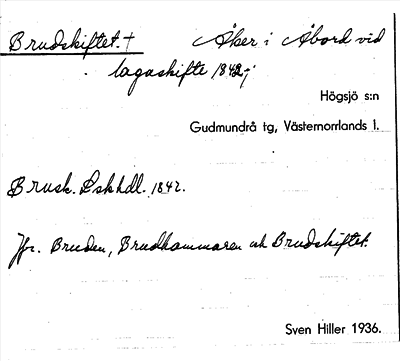 Brudskiftet. † Åker i Åbord vid
lagaskifte 1842;
Högsjö s:n
Gudmundrå tg, Västernorrlands l.
Brusk. Lskhdl. 1842.
Jfr. Bruden, Brudkammaren och Brudskiftet.
Sven Hiller 1936.